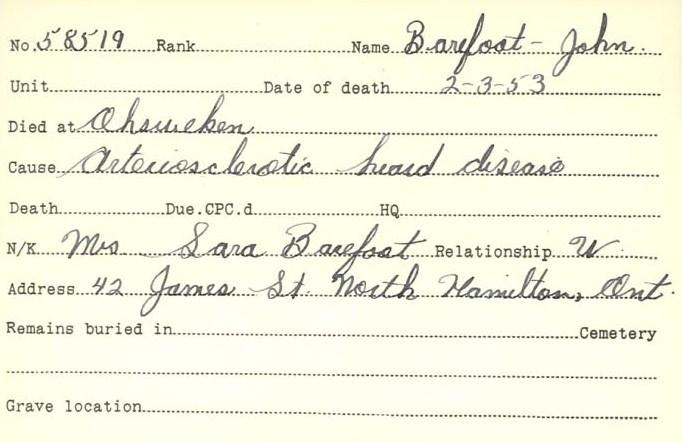 No. 58519 Rank Name Barefoot - John.
Unit Date of death 2-3-53
Died at Ohsweken
Cause Arteriosclerotic heard disease
Death Due.CPC.d HQ
N/K Mrs Sara Barefoot Relationship W
Address 42 James St. North Hamilton, Ont.
Remains buried in Cemetery
Grave location